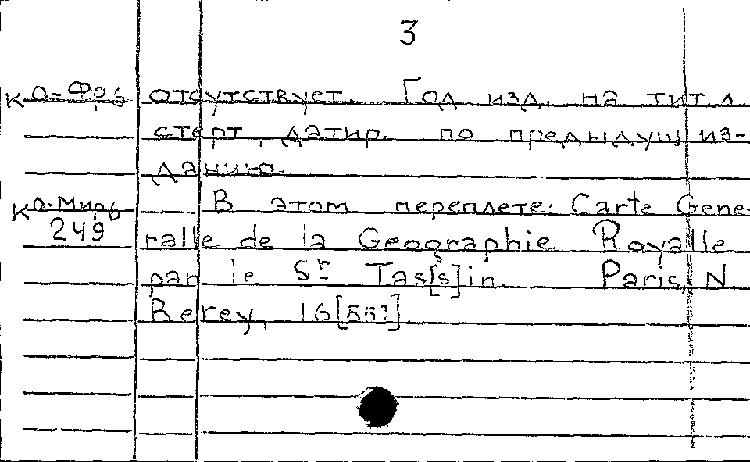 3
К О-Фрь отсутствует. Год изд. на тит. л.
стерт, датир. по предыдущ. из-
данию.
К О-Мирь В этом переплете: Carte Gene-
249 ralle de la Geographie Royalle
par le Sr Tas[s]in. Paris, N
Berey, 16[55?]